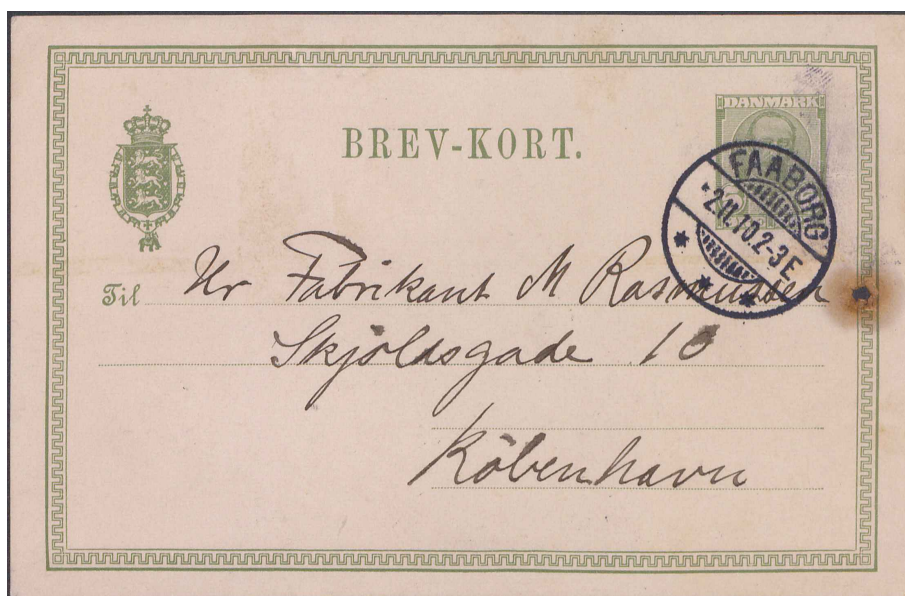 BREV-KORT.
DANMARK
FAABORG
*2.11.10.2-3E
Til Hr Fabrikant M Rasmussen
Skjoldsgade 10
København